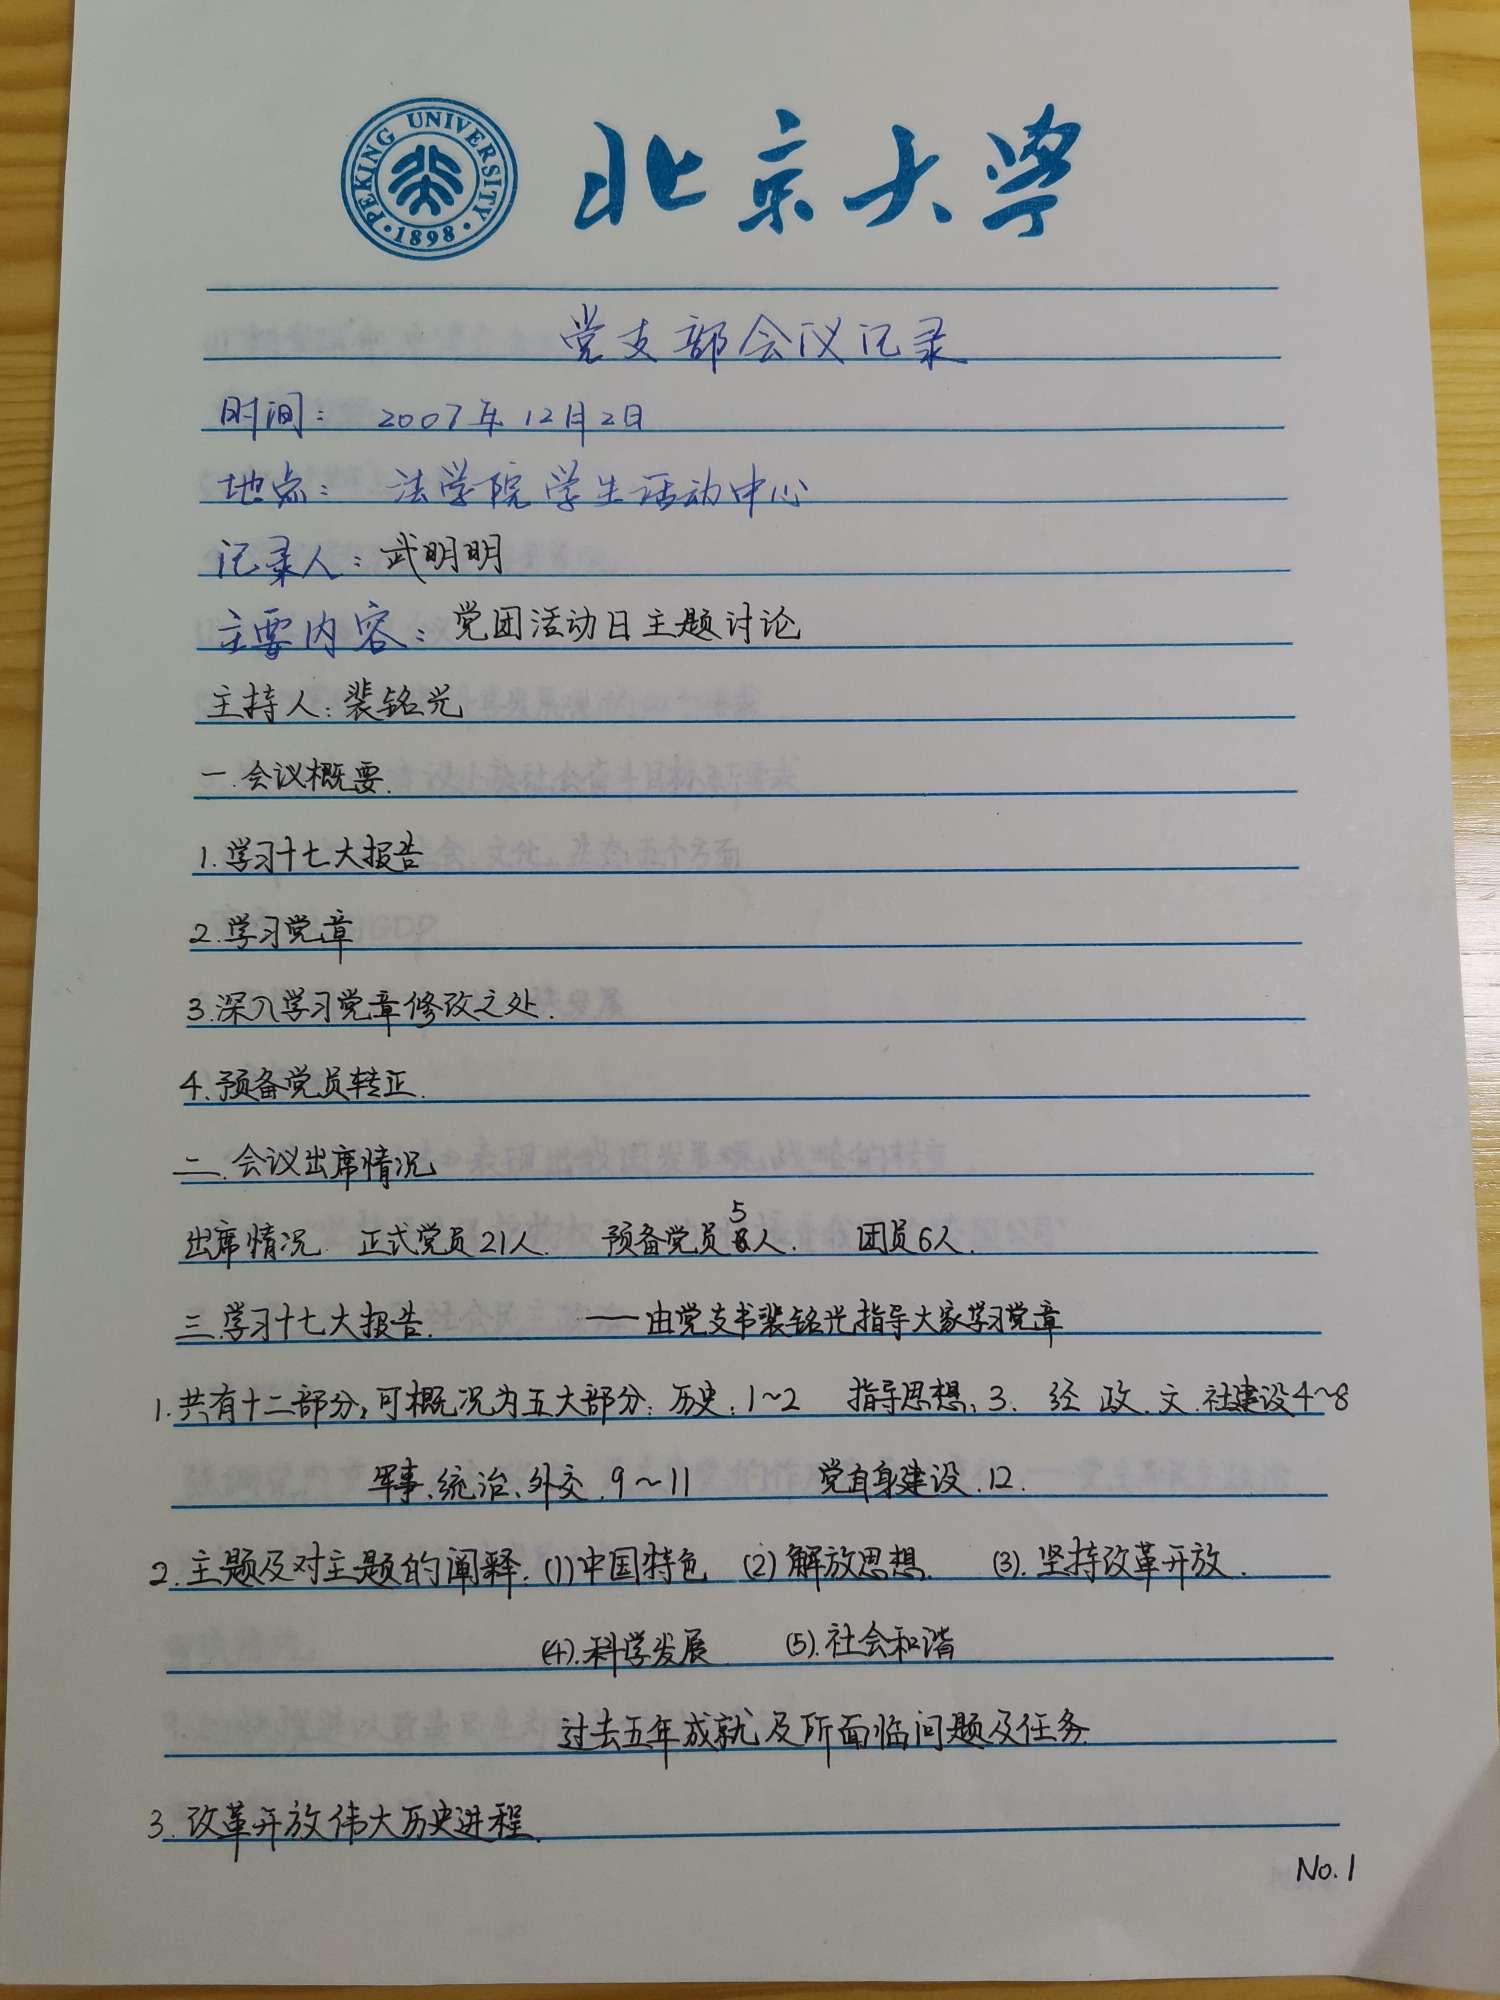 PEKING UNIVERSITY
1898
北京大学
党支部会议记录
时间: 2007年12月2日
地点: 法学院学生活动中心
记录人:武明明
主要内容:党团活动日主题讨论
主持人:裴铭光
一.会议概要.
1.学习十七大报告
2.学习党章
3.深入学习党章修改之处.
4.预备党员转正.
二.会议出席情况
出席情况. 正式党员21人. 预备党员5人. 团员6人.
三.学习十七大报告. ——由党支书裴铭光指导大家学习党章
1.共有十二部分,可概况为五大部分:历史:1~2 指导思想:3. 经.政.文.社建设4~8
军事、统治、外交.9~11 党自身建设.12.
2.主题及对主题的阐释:(1)中国特色 (2)解放思想. (3).坚持改革开放.
(4).科学发展 (5).社会和谐
过去五年成就及所面临问题及任务
3.改革开放伟大历史进程.
No.1